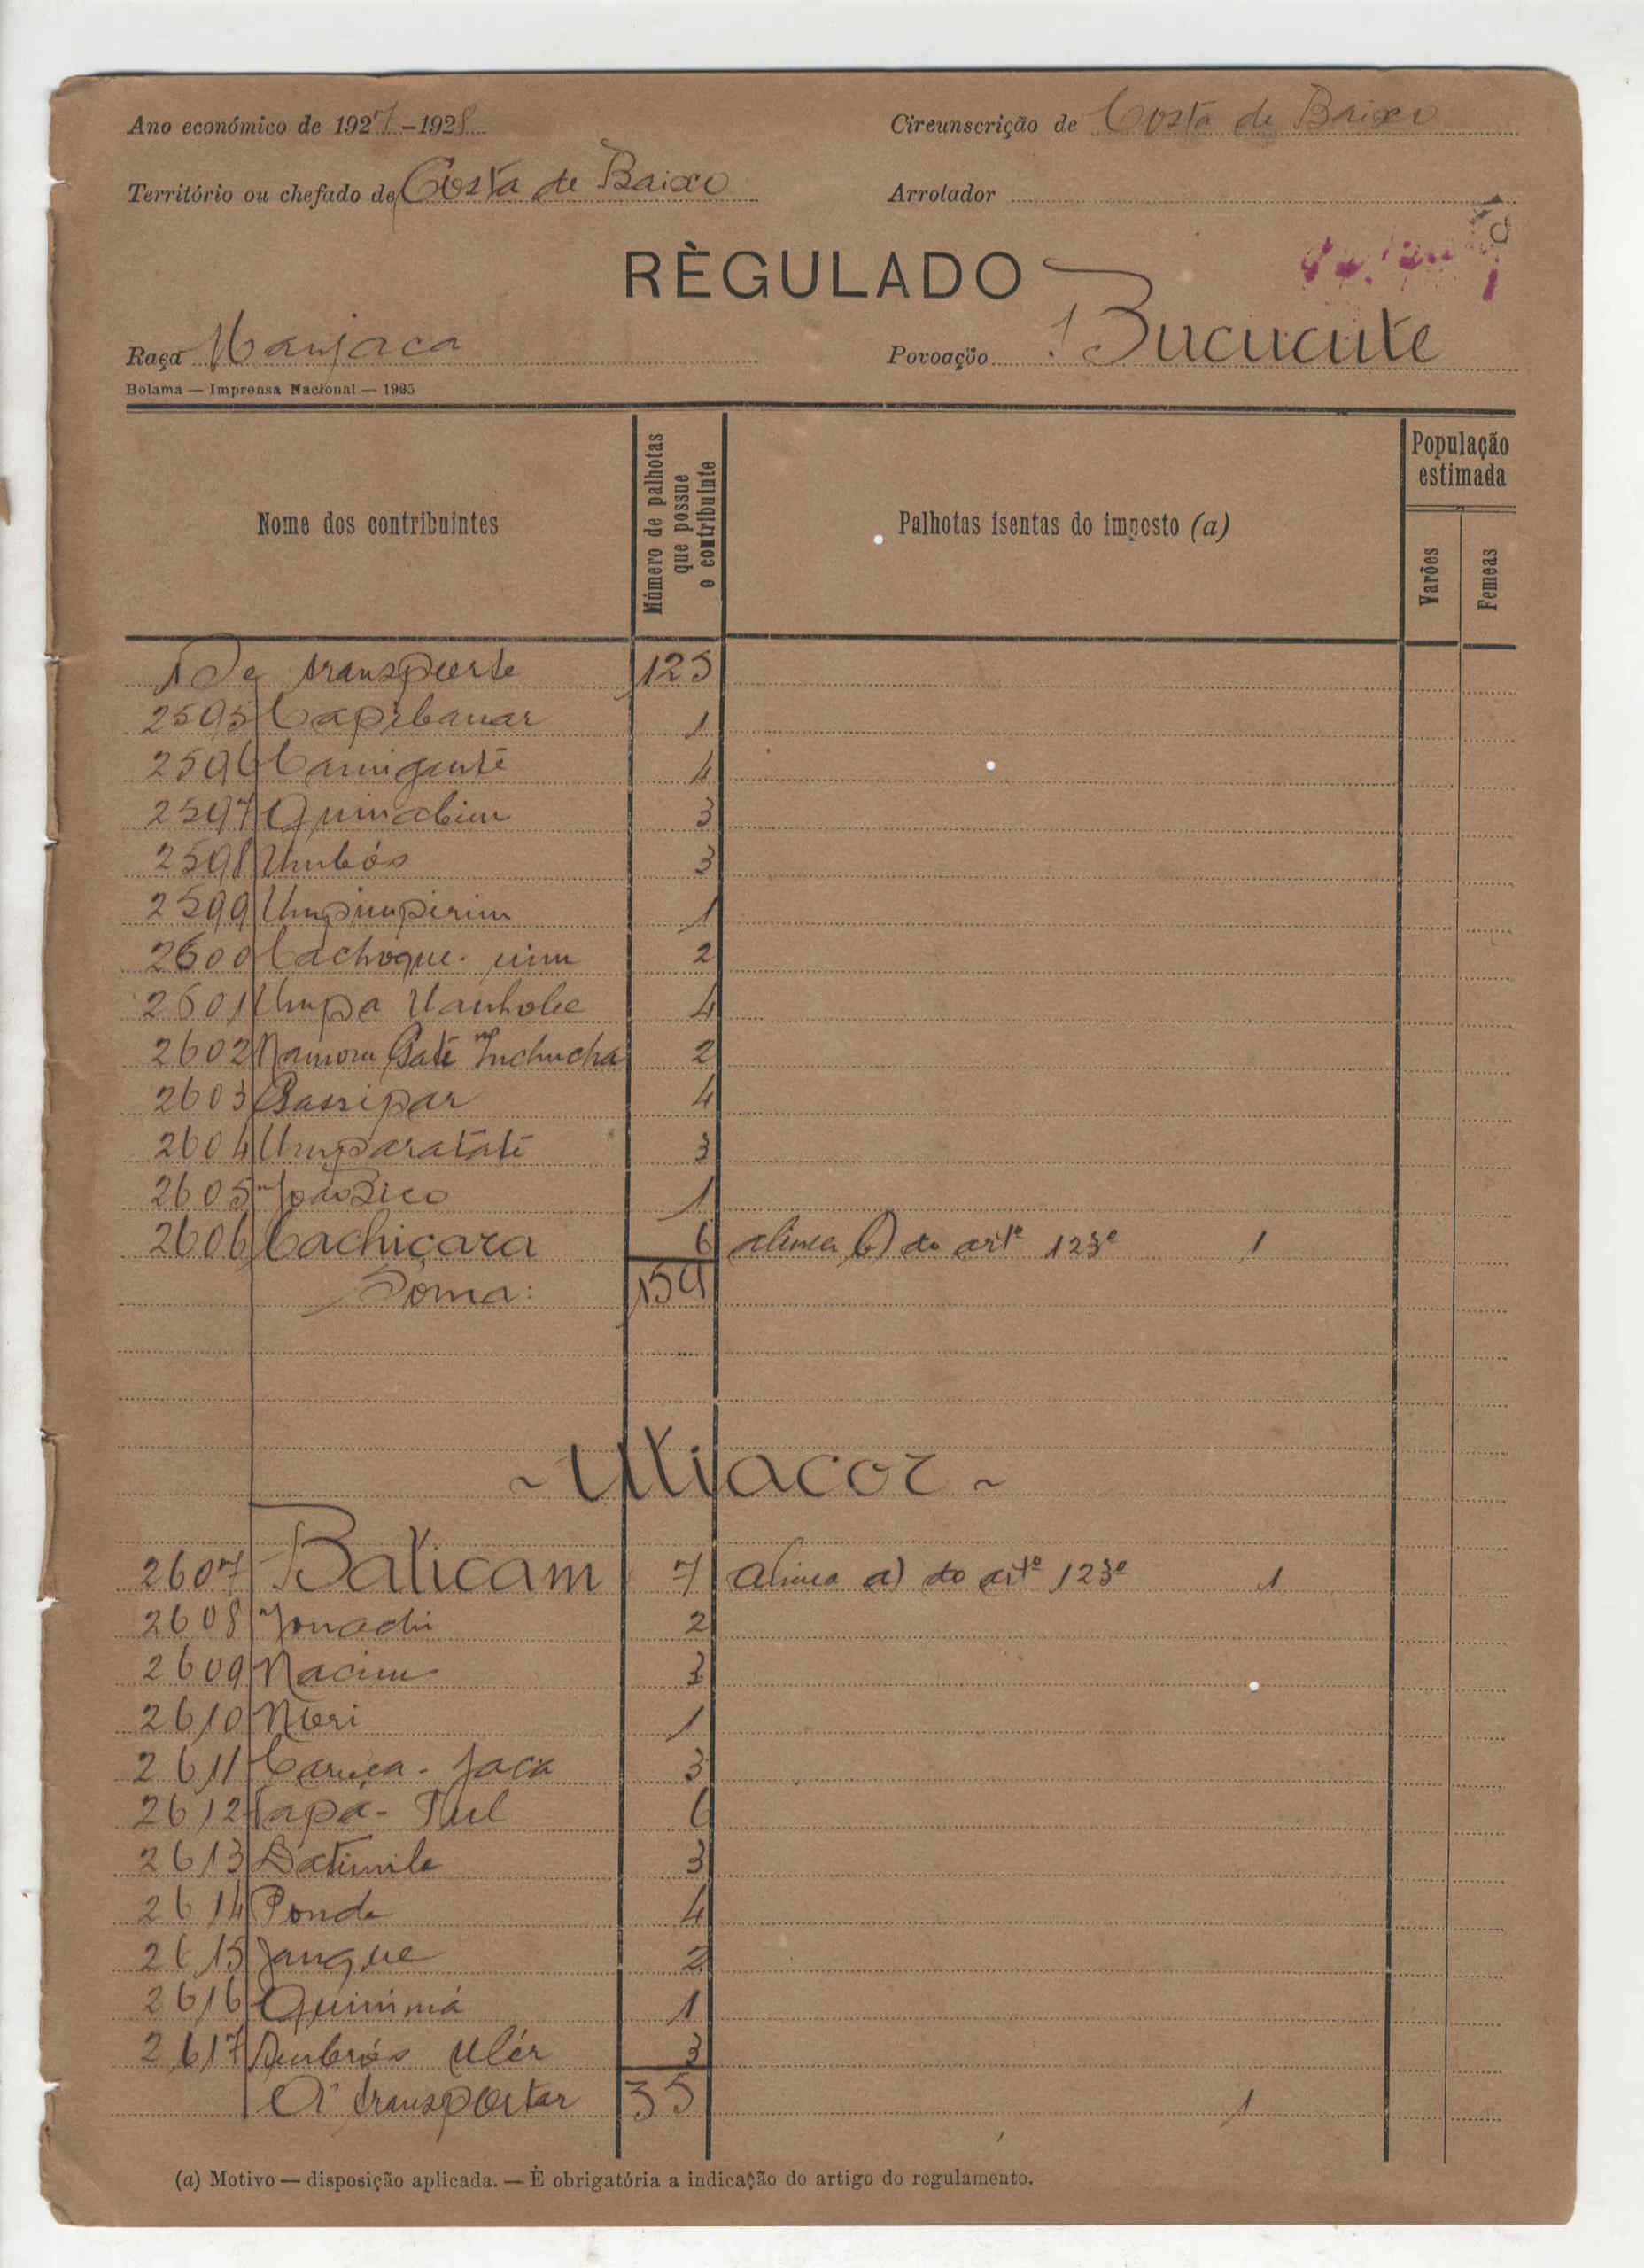 Ano económico de 1927-1928
Circunscrição de Costa de Baixo
Território ou chefado de Costa de Baixo
Arrolador
RÈGULADO
Raça Manjaca
Povoação Bucucute
Bolama — Imprensa Nacional — 1925
Nome dos contribuintes
Número de palhotas que possue o contribuinte
Palhotas isentas do imposto (a)
População estimada
Varões
Femeas
De transporte 125
2595 Capibanar 1
2596 Camiganté 4
2597 Quinabim 3
2598 Umbós 3
2599 Umpimpirim 1
2600 Cachoque- uim 2
2601 Umpa Uanhole 4
2602 Namom Baté Inchucha 2
2603 Bassipar 4
2604 Umparatáté 3
2605 João Bico 1
2606 Cachicara 6 alinea b) do artº 123º 1
Sôma: 159
~ Utiacor ~
2607 Baticam 7 alinea a) do artº 123º 1
2608 Jonadi 2
2609 Nacim 3
2610 Nori 1
2611 Caruca - Jaca 3
2612 Iapá - Tul 6
2613 Batimila 3
2614 Ponda 4
2615 Jangue 2
2616 Quinimá 1
2617 Ambrós Ulér 3
A transportar 35 1
(a) Motivo — disposição aplicada. — È obrigatória a indicação do artigo do regulamento.